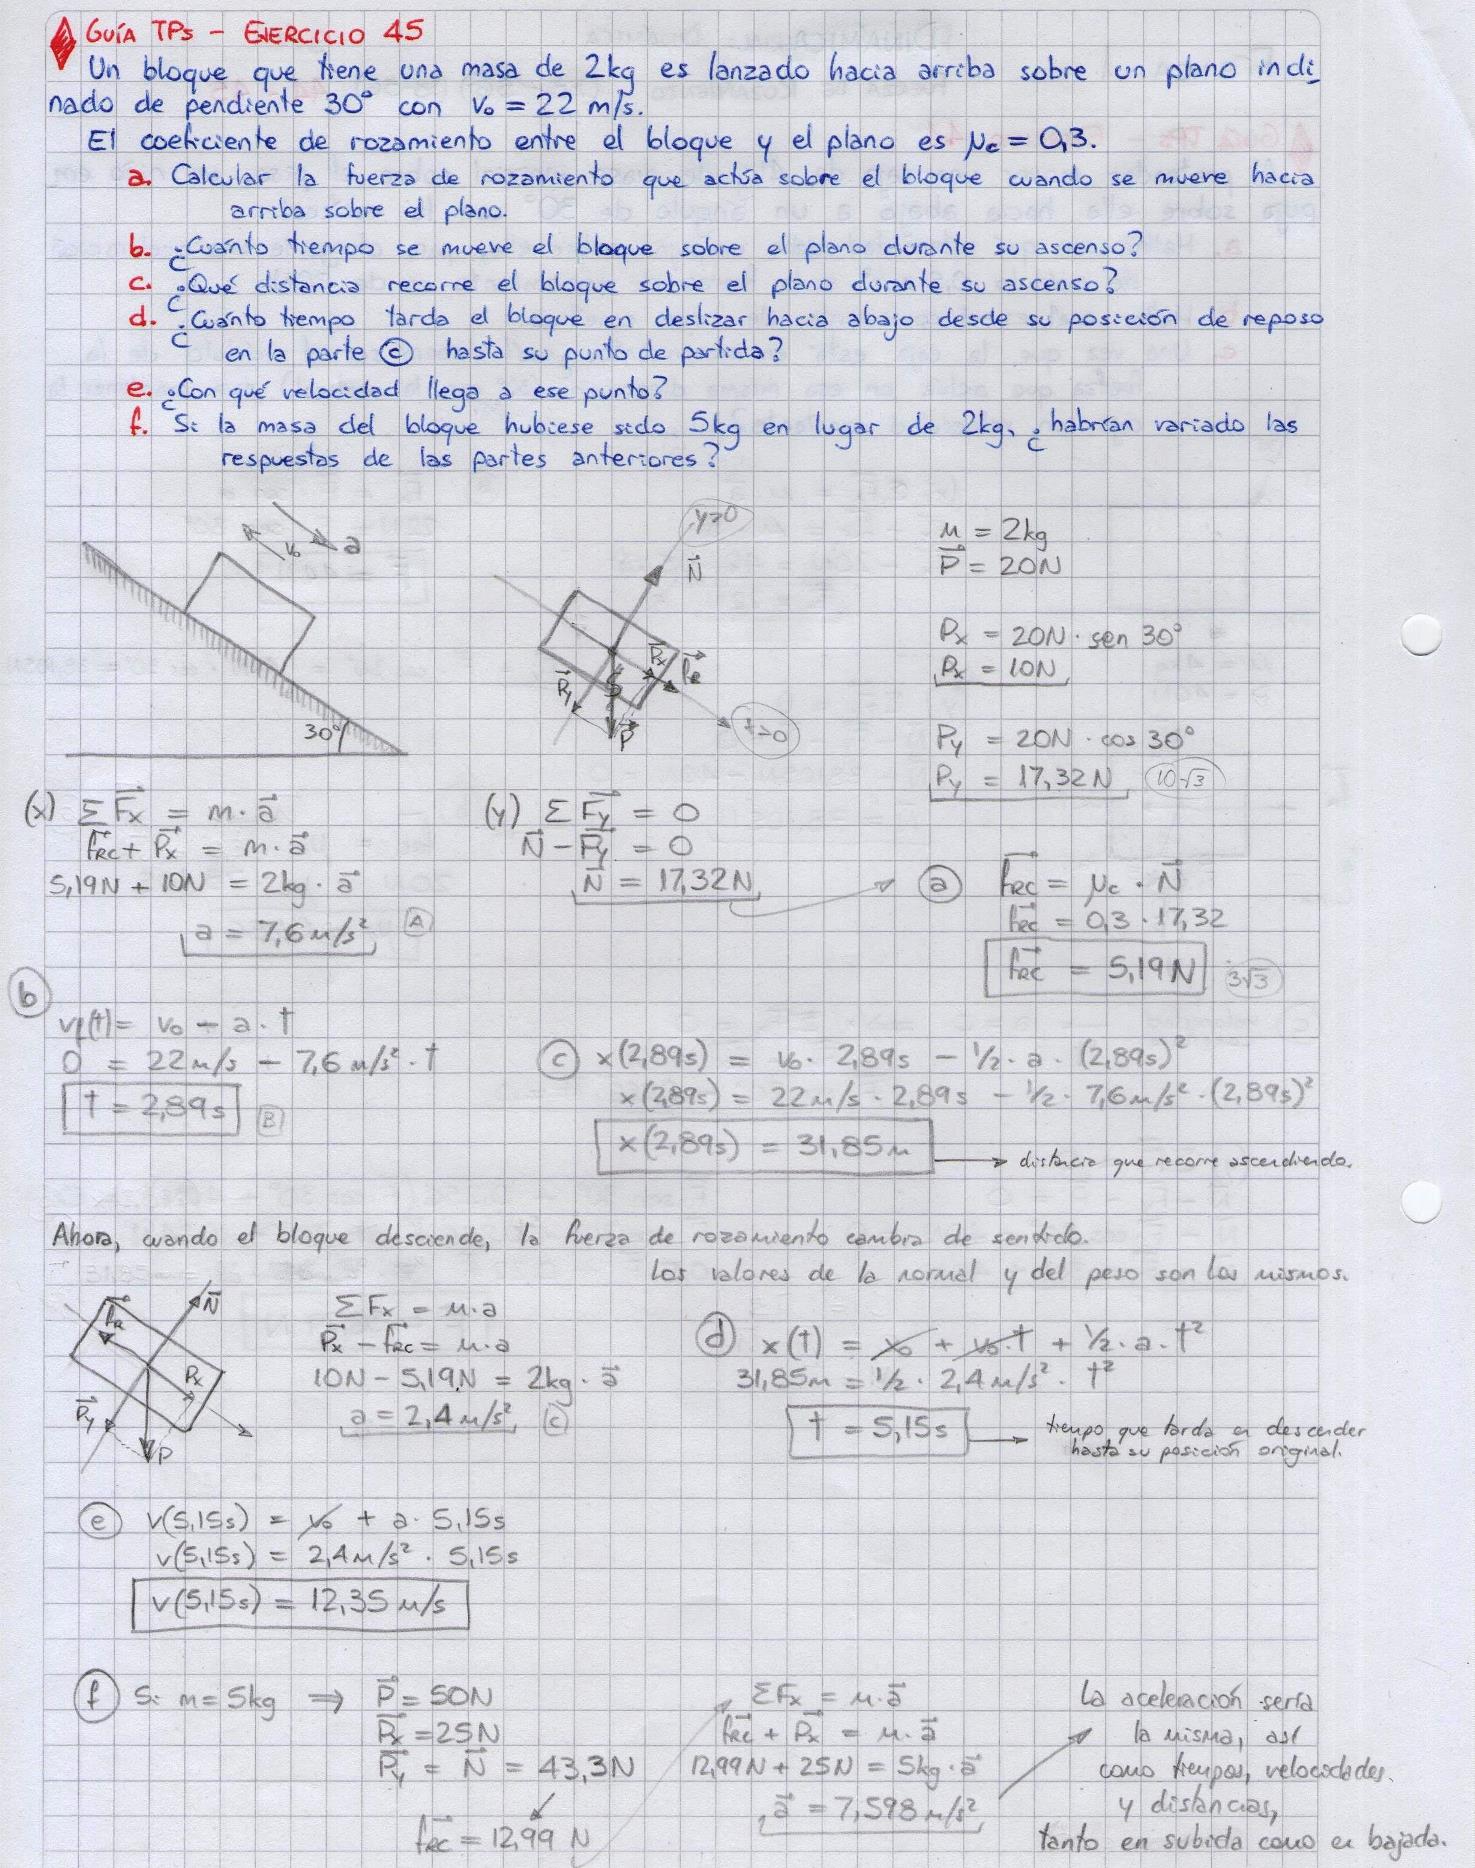 GUÍA TPs - EJERCICIO 45
Un bloque que tiene una masa de 2kg es lanzado hacia arriba sobre un plano incli
nado de pendiente 30° con v₀ = 22 m/s.
El coeficiente de rozamiento entre el bloque y el plano es μc = 0,3.
a. Calcular la fuerza de rozamiento que actúa sobre el bloque cuando se mueve hacia
arriba sobre el plano.
b. ¿Cuánto tiempo se mueve el bloque sobre el plano durante su ascenso?
c. ¿Qué distancia recorre el bloque sobre el plano durante su ascenso?
d. ¿Cuánto tiempo tarda el bloque en deslizar hacia abajo desde su posición de reposo
en la parte ⓒ hasta su punto de partida?
e. ¿Con qué velocidad llega a ese punto?
f. Si la masa del bloque hubiese sido 5kg en lugar de 2kg, ¿habrían variado las
respuestas de las partes anteriores?
v₀ a
30°
y>0
N
Px fR
Py
P
m = 2kg
P = 20N
Px = 20N · sen 30°
Px = 10N
Py = 20N · cos 30°
Py = 17,32N 10√3
(x) ΣFx = m·a
fRC + Px = m·a
5,19N + 10N = 2kg · a
a = 7,6 m/s² A
(y) ΣFy = 0
N - Py = 0
N = 17,32N
ⓐ fRC = μc · N
fRC = 0,3 · 17,32
fRC = 5,19N 3√3
ⓑ
vf(t) = v₀ - a · t
0 = 22 m/s - 7,6 m/s² · t
t = 2,89s B
ⓒ x(2,89s) = v₀ · 2,89s - 1/2 · a · (2,89s)²
x(2,89s) = 22 m/s · 2,89s - 1/2 · 7,6 m/s² · (2,89s)²
x(2,89s) = 31,85m → distancia que recorre ascendiendo.
Ahora, cuando el bloque desciende, la fuerza de rozamiento cambia de sentido.
Los valores de la normal y del peso son los mismos.
fR N
Px
Py
P
ΣFx = m·a
Px - fRC = m·a
10N - 5,19N = 2kg · a
a = 2,4 m/s² C
ⓓ x(t) = x₀ + v₀·t + 1/2 · a · t²
31,85m = 1/2 · 2,4 m/s² · t²
t = 5,15s → tiempo que tarda en descender
hasta su posición original.
ⓔ v(5,15s) = v₀ + a · 5,15s
v(5,15s) = 2,4 m/s² · 5,15s
v(5,15s) = 12,35 m/s
ⓕ Si m = 5kg ⇒ P = 50N
Px = 25N
Py = N = 43,3N
fRC = 12,99 N
ΣFx = m·a
fRC + Px = m·a
12,99N + 25N = 5kg · a
a = 7,598 m/s²
La aceleración sería
la misma, así
como tiempos, velocidades.
y distancias,
tanto en subida como en bajada.